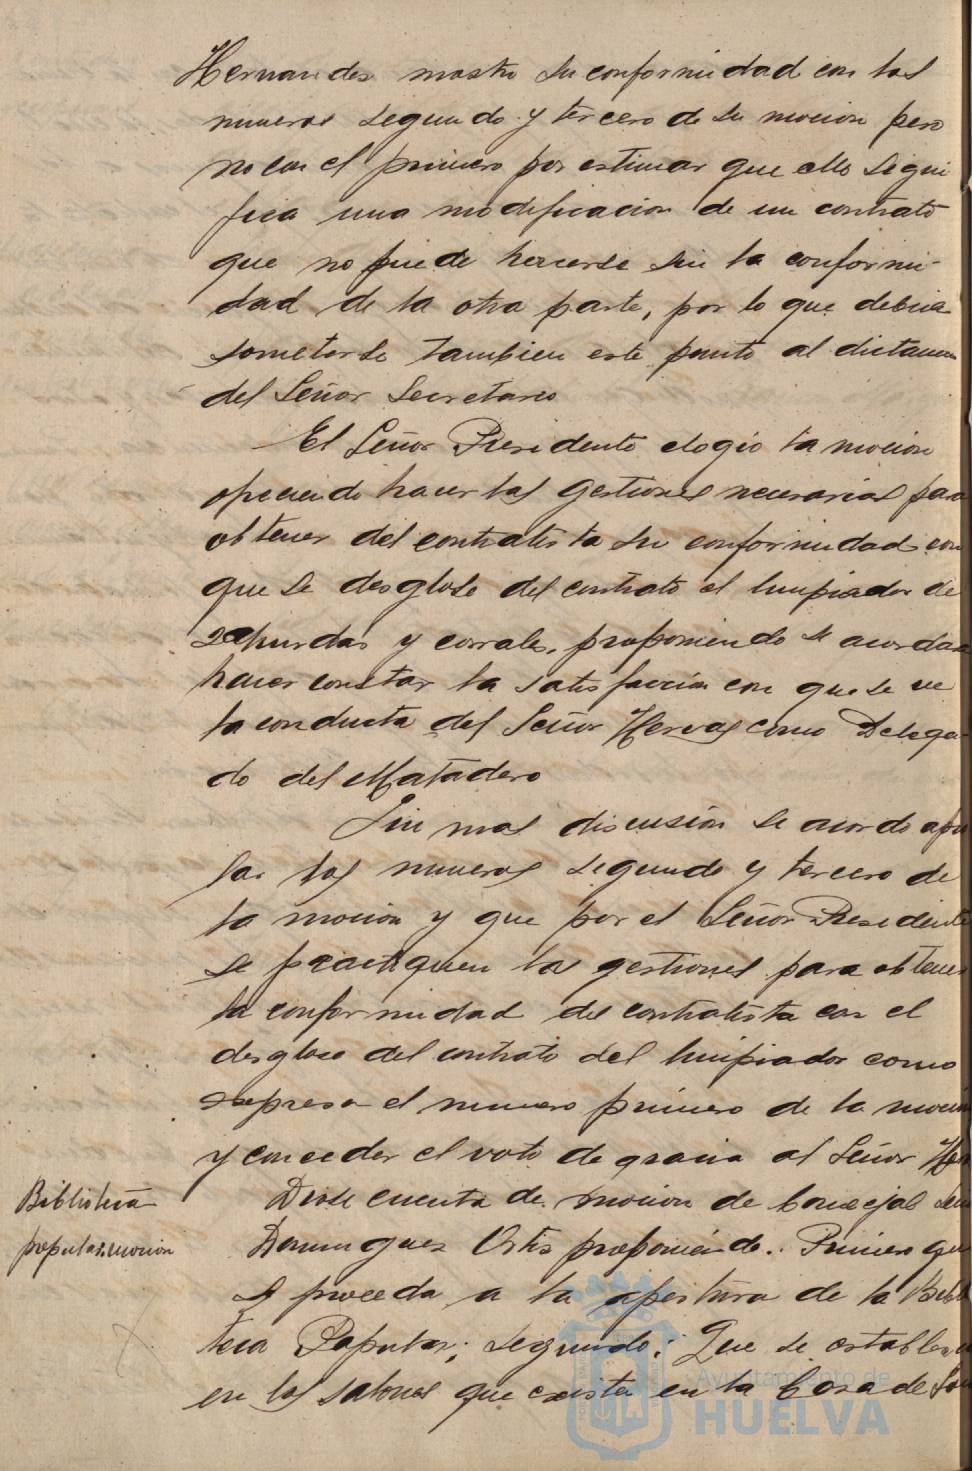 Hernandes mostro su conformidad con los
numeros segundo y tercero de su mocion pero
no con el primero por estimar que ello signi
fica una modificacion de un contrato
que no puede hacerse sin la conformi-
dad de la otra parte, por lo que debia
someterse tambien este punto al dictamen
del Señor Secretario
El Señor Presidente elogio la mocion
ofreciendo hacer las gestiones necesarias para
obtener del contratista su conformidad con
que se desglose del contrato el limpiador de
zahurdas y corrales, proponiendo se acordara
hacer constar la satisfaccion con que se ve
la conducta del Señor Hervas como Delega-
do del Matadero
Sin mas discusión se acordo apro
bar los numeros segundo y tercero de
la mocion y que por el Señor Presidente
se practiquen las gestiones para obtener
la conformidad del contratista con el
desglose del contrato del limpiador como
expresa el numero primero de la mocion
y conceder el voto de gracia al Señor
Biblioteca
popular. mocion
Diose cuenta de mocion de Concejal Señ
Domingues Ortis proponiendo. Primero que
se proceda a la apertura de la Biblio
teca Popular; segundo: Que se establezca
en los salones que existen en la Casa de
Ayuntamiento de
HUELVA